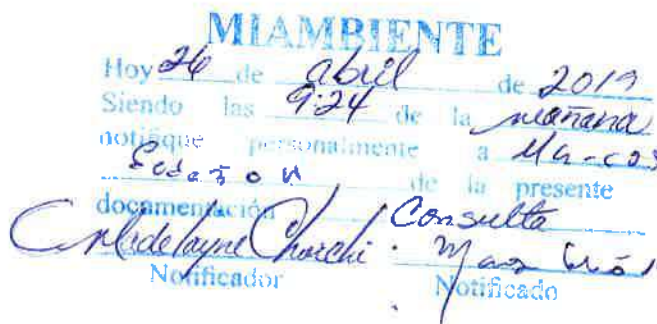 MIAMBIENTE
Hoy 26 de abril de 2019
Siendo las 9:24 de la mañana
notifique personalmente a Marcos
de la presente
documentación Consulta
Notificador Notificado